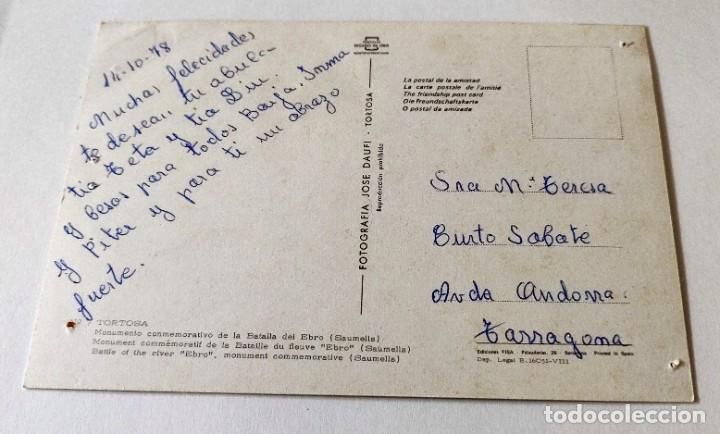 14-10-78
Muchas felicidades
te desean tu abue-
tia Teta y tia Lin.
y besos para todos Borja. Imma
y Piter y para ti un abrazo
fuerte.
TORTOSA
Monumento conmemorativo de la Batalla del Ebro (Saumells)
Monument commémoratif de la Bataille du fleuve "Ebro" (Saumells)
Battle of the river "Ebro", monument commemorative (Saumells)
FOTOGRAFIA JOSE DAUFI - TORTOSA
Reproducción prohibida
La postal de la amistad
La carte postale de l'amitié
The friendship post card
Die Freundschaftskarte
O postal da amizade
Sra Mª Teresa
Burto Sabate
Avda Andorra
Tarragona
Ediciones FISA - Barcelona Printed in Spain
Dep. Legal B. 16051-VIII
todocoleccion